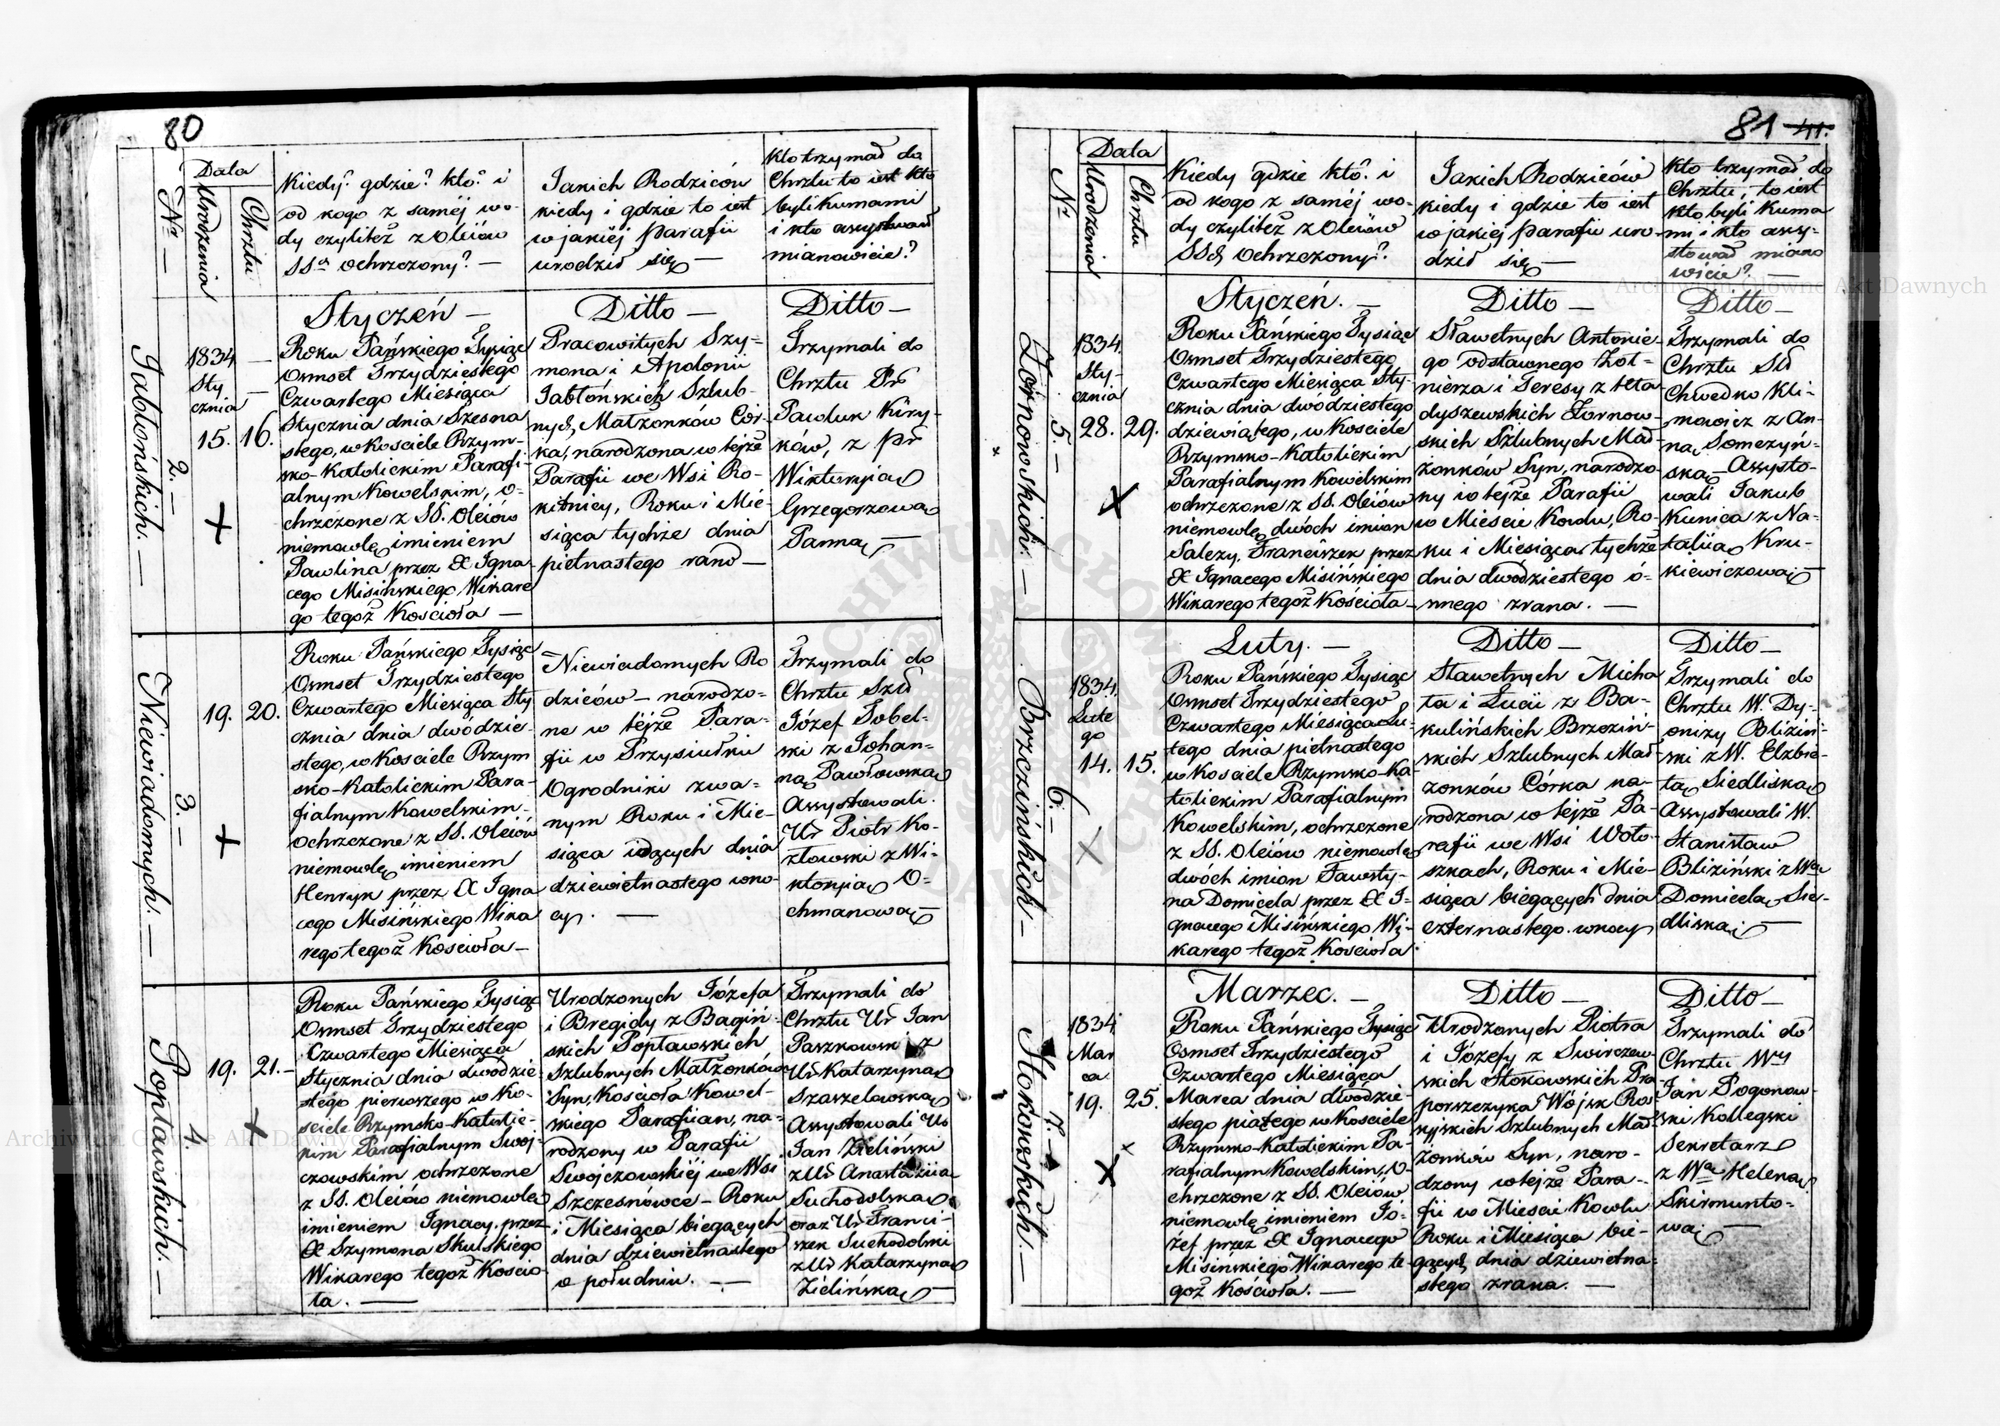 80
Nr
Data
Urodzenia
Chrztu
Kiedy? gdzie? kto? i
od kogo z saméj wo-
dy czyliteż z Oleiów
SSch ochrzczony? —
Jakich Rodziców
kiedy i gdzie to iest
w jakiéj Parafii
urodził się —
kto trzymał do
Chrztu to iest kto
byli kumami
i kto assystował
mianowicie?
Jabłońskich. —
2. —
1834 —
Sty —
cznia
15. 16.
Styczeń —
Roku Pańskiego Tysiąc
Osmset Trzydziestego
Czwartego Miesiąca
Stycznia dnia Szesna
stego, w Kosciele Rzym-
sko-Katolickim Parafi-
alnym Kowelskim, o-
chrzczone z SS. Oleiów
niemowlę imieniem
Pawlina przez X Igna-
cego Misińskiego Wikare
go tegoż Kościoła —
Ditto —
Pracowitych Szy-
mona i Apolonii
Jabłońskich Szlub-
nych Małżonków Cór-
ka, narodzona w tejże
Parafii we Wsi Ro-
kitnicy, Roku i Mie-
siąca tychże dnia
pietnastego rano —
Ditto —
Trzymali do
Chrztu Pr
Pawluk Kiry-
ków, z Pr
Wikturyią
Grzegorzową
Panną —
Niewiadomych. —
3. —
19. 20.
Roku Pańskiego Tysiąc
Osmset Trzydziestego
Czwartego Miesiąca Sty
cznia dnia dwódzie-
stego, w Kosciele Rzym
sko-Katolickim Para-
fialnym Kowelskim -
ochrzczone z SS. Oleiów
niemowlę imieniem
Henryk przez X Igna
cego Misińskiego Wika
rego tegoż Kościoła —
Niewiadomych Ro
dziców — narodzo-
ne w téjże Para-
fii w Przysiułku
Ogrodniki zwa-
nym Roku i Mie-
siąca idących dnia
dziewietnastego w no-
cy. —
Trzymali do
Chrztu Szl
Józef Sobel-
ski z Johan-
ną Pawłowską
Assystowali.
Ur Piotr Ko-
złowski z Wi-
ktoryią O-
chmanową —
Popławskich. —
4.
19. 21. —
Roku Pańskiego Tysiąc
Osmset Trzydziestego
Czwartego Miesiąca
Stycznia dnia dwódzie
stego pierwszego w Ko-
sciele Rzymsko-Katolic-
kim Parafialnym Swoj-
czowskim, ochrzczone
z SS. Oleiów niemowlę
imieniem Ignacy, przez
X Szymona Skulskiego
Wikarego tegoż Kościo
ła. —
Urodzonych Józefa
i Bregidy z Bagiń-
skich Popławskich
Szlubnych Małżonków
Syn, Kościoła Kowel-
skiego Parafiian, na-
rodzony w Parafii
Swojczowskiéj we Wsi
Szczesnowce — Roku
i Miesiąca biegących
dnia dziewietnastego
o południu. —
Trzymali do
Chrztu Ur Jan
Paszkowski z
Ur Katarzyną
Szaszelawską
Assystowali Ur
Jan Zieliński
z Ur Anastaziią
Suchodolską
oraz Ur Franci-
szek Suchodolski
z Ur Katarzyną
Zielińską —
81 41.
Nr
Data
Urodzenia
Chrztu
Kiedy gdzie kto? i
od kogo z saméj wo-
dy czyliteż z Oleiów
SSch Ochrzczony?
Jakich Rodziców
kiedy i gdzie to iest
w jakiéj Parafii uro-
dził się —
Kto trzymał do
Chrztu, to iest
kto byli Kuma
mi i kto assy-
stował miano
wicie? —
Żornowskich. —
5. —
1834.
Sty-
cznia
28. 29.
Styczeń. —
Roku Pańskiego Tysiąc
Osmset Trzydziestego
Czwartego Miesiąca Sty-
cznia dnia dwódziestego
dziewiątego, w Kosciele
Rzymsko-Katolickim
Parafialnym Kowelskim
ochrzczone z SS. Oleiów
niemowlę dwóch imion
Salezy, Franciszek przez
X Ignacego Misińskiego
Wikarego tegoż Kościoła —
Ditto —
Sławetnych Antonie-
go odstawnego Żoł-
nierza i Teresy z
dyszewskich Żornow-
skich Szlubnych Mał-
żonków Syn, narodzo-
ny w tejże Parafii
w Miescie Kowlu, Ro-
ku i Miesiąca tychże
dnia dwódziestego ó-
smego zrana. —
Ditto —
Trzymali do
Chrztu Sł
Chwedko Kli-
mowicz z An-
ną Somczyń-
ską — Assysto-
wali Jakub
Kunica z Na-
taliią Kru-
kiewiczową —
Brzezińskich —
6. —
1834.
Lute
go
14. 15.
Luty. —
Roku Pańskiego Tysiąc
Osmset Trzydziestego
Czwartego Miesiąca Lu-
tego dnia pietnastego
w Kosciele Rzymsko-Ka-
tolickim Parafialnym
Kowelskim, ochrzczone
z SS. Oleiów niemowlę
dwóch imion Fawsty-
na Domicela przez X I-
gnacego Misińskiego Wi-
karego tegoż Kościoła
Ditto —
Sławetnych Micha
ła i Łucii z Ba-
kulińskich Brzeziń-
skich Szlubnych Mał-
żonków Córka na-
rodzona w tejże Pa-
rafii we Wsi Woło-
szkach, Roku i Mie-
siąca biegących dnia
czternastego w nocy
Ditto —
Trzymali do
Chrztu W. Dy-
onizy Bliziń-
ski z W. Elzbie-
tą Siedliską
Assystowali W.
Stanisław
Bliziński z Wną
Domicelą Sie-
dliską —
Stokowskich. —
7. —
1834
Mar
ca
19. 25.
Marzec. —
Roku Pańskiego Tysiąc
Osmset Trzydziestego
Czwartego Miesiąca
Marca dnia dwódzie-
stego piątego w Kosciele
Rzymsko-Katolickim Pa-
rafialnym Kowelskim, o-
chrzczone z SS. Oleiów
niemowlę imieniem Jó-
zef przez X Ignacego
Misińskiego Wikarego te-
goż Kościoła. —
Ditto —
Urodzonych Piotra
i Józefy z Swirczew-
skich Stokowskich Pra
porszczyka Wójsk Ros
syjskich Szlubnych Mał-
żonków Syn, naro-
dzony w tejże Para-
fii w Miescie Kowlu
Roku i Miesiąca bie-
gących dnia dziewietna-
stego zrana. —
Ditto —
Trzymali do
Chrztu Wny
Jan Pogonow-
ski Kollegski
Sekretarz
z Wną Heleną
Skirmunto-
wą —
Archiwum Główne Akt Dawnych
Archiwum Główne Akt Dawnych